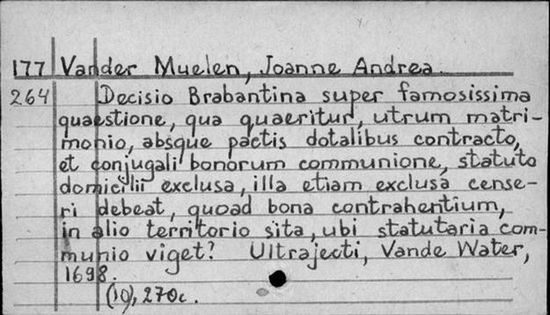 177 Vander Muelen, Joanne Andrea.
264 Decisio Brabantina super famosissima
quaestione, qua quaeritur, utrum matri-
monio, absque pactis dotalibus contracto,
et conjugali bonorum communione, statuto
domicilii exclusa, illa etiam exclusa cense-
ri debeat, quoad bona contrahentium,
in alio territorio sita, ubi statutaria com-
munio viget? Ultrajecti, Vande Water,
1698.
(10), 270c.